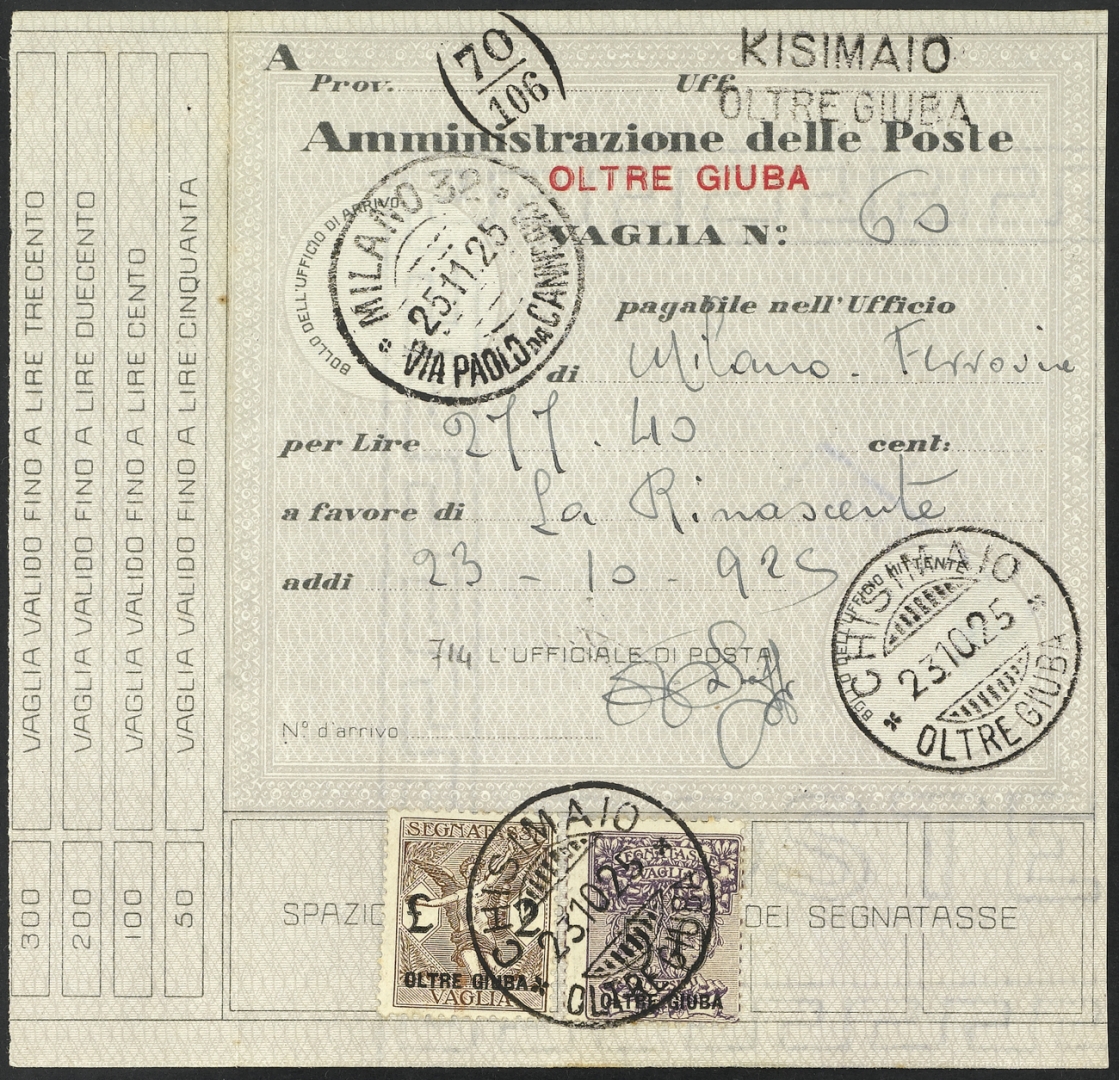 A
70
106
KISIMAIO
Prov. Uff.
OLTRE GIUBA
Amministrazione delle Poste
OLTRE GIUBA
VAGLIA Nº: 60
BOLLO DELL'UFFICIO DI ARRIVO
MILANO 32
25.11.25
VIA PAOLO DA CANNOBIO
pagabile nell'Ufficio
di Milano. Ferrovie
per Lire 277.40 cent:
a favore di La Rinascente
addi 23 - 10 - 925
BOLLO DELL'UFFICIO MITTENTE
CHISIMAIO
23.10.25
OLTRE GIUBA
714 L'UFFICIALE DI POSTA
Nº d'arrivo
VAGLIA VALIDO FINO A LIRE TRECENTO
VAGLIA VALIDO FINO A LIRE DUECENTO
VAGLIA VALIDO FINO A LIRE CENTO
VAGLIA VALIDO FINO A LIRE CINQUANTA
300
200
100
50
SPAZIO
DEI SEGNATASSE
SEGNATASSE
£ 2
OLTRE GIUBA
VAGLIA
SEGNATASSE
VAGLIA
OLTRE GIUBA
CHISIMAIO
23.10.25
OLTRE GIUBA